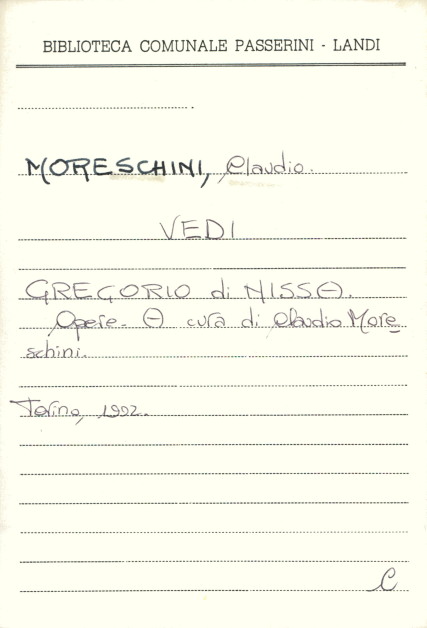 BIBLIOTECA COMUNALE PASSERINI - LANDI
MORESCHINI, Claudio.
VEDI
GREGORIO di NISSA.
Opere. A cura di Claudio More=
schini.
Torino, 1992.
C